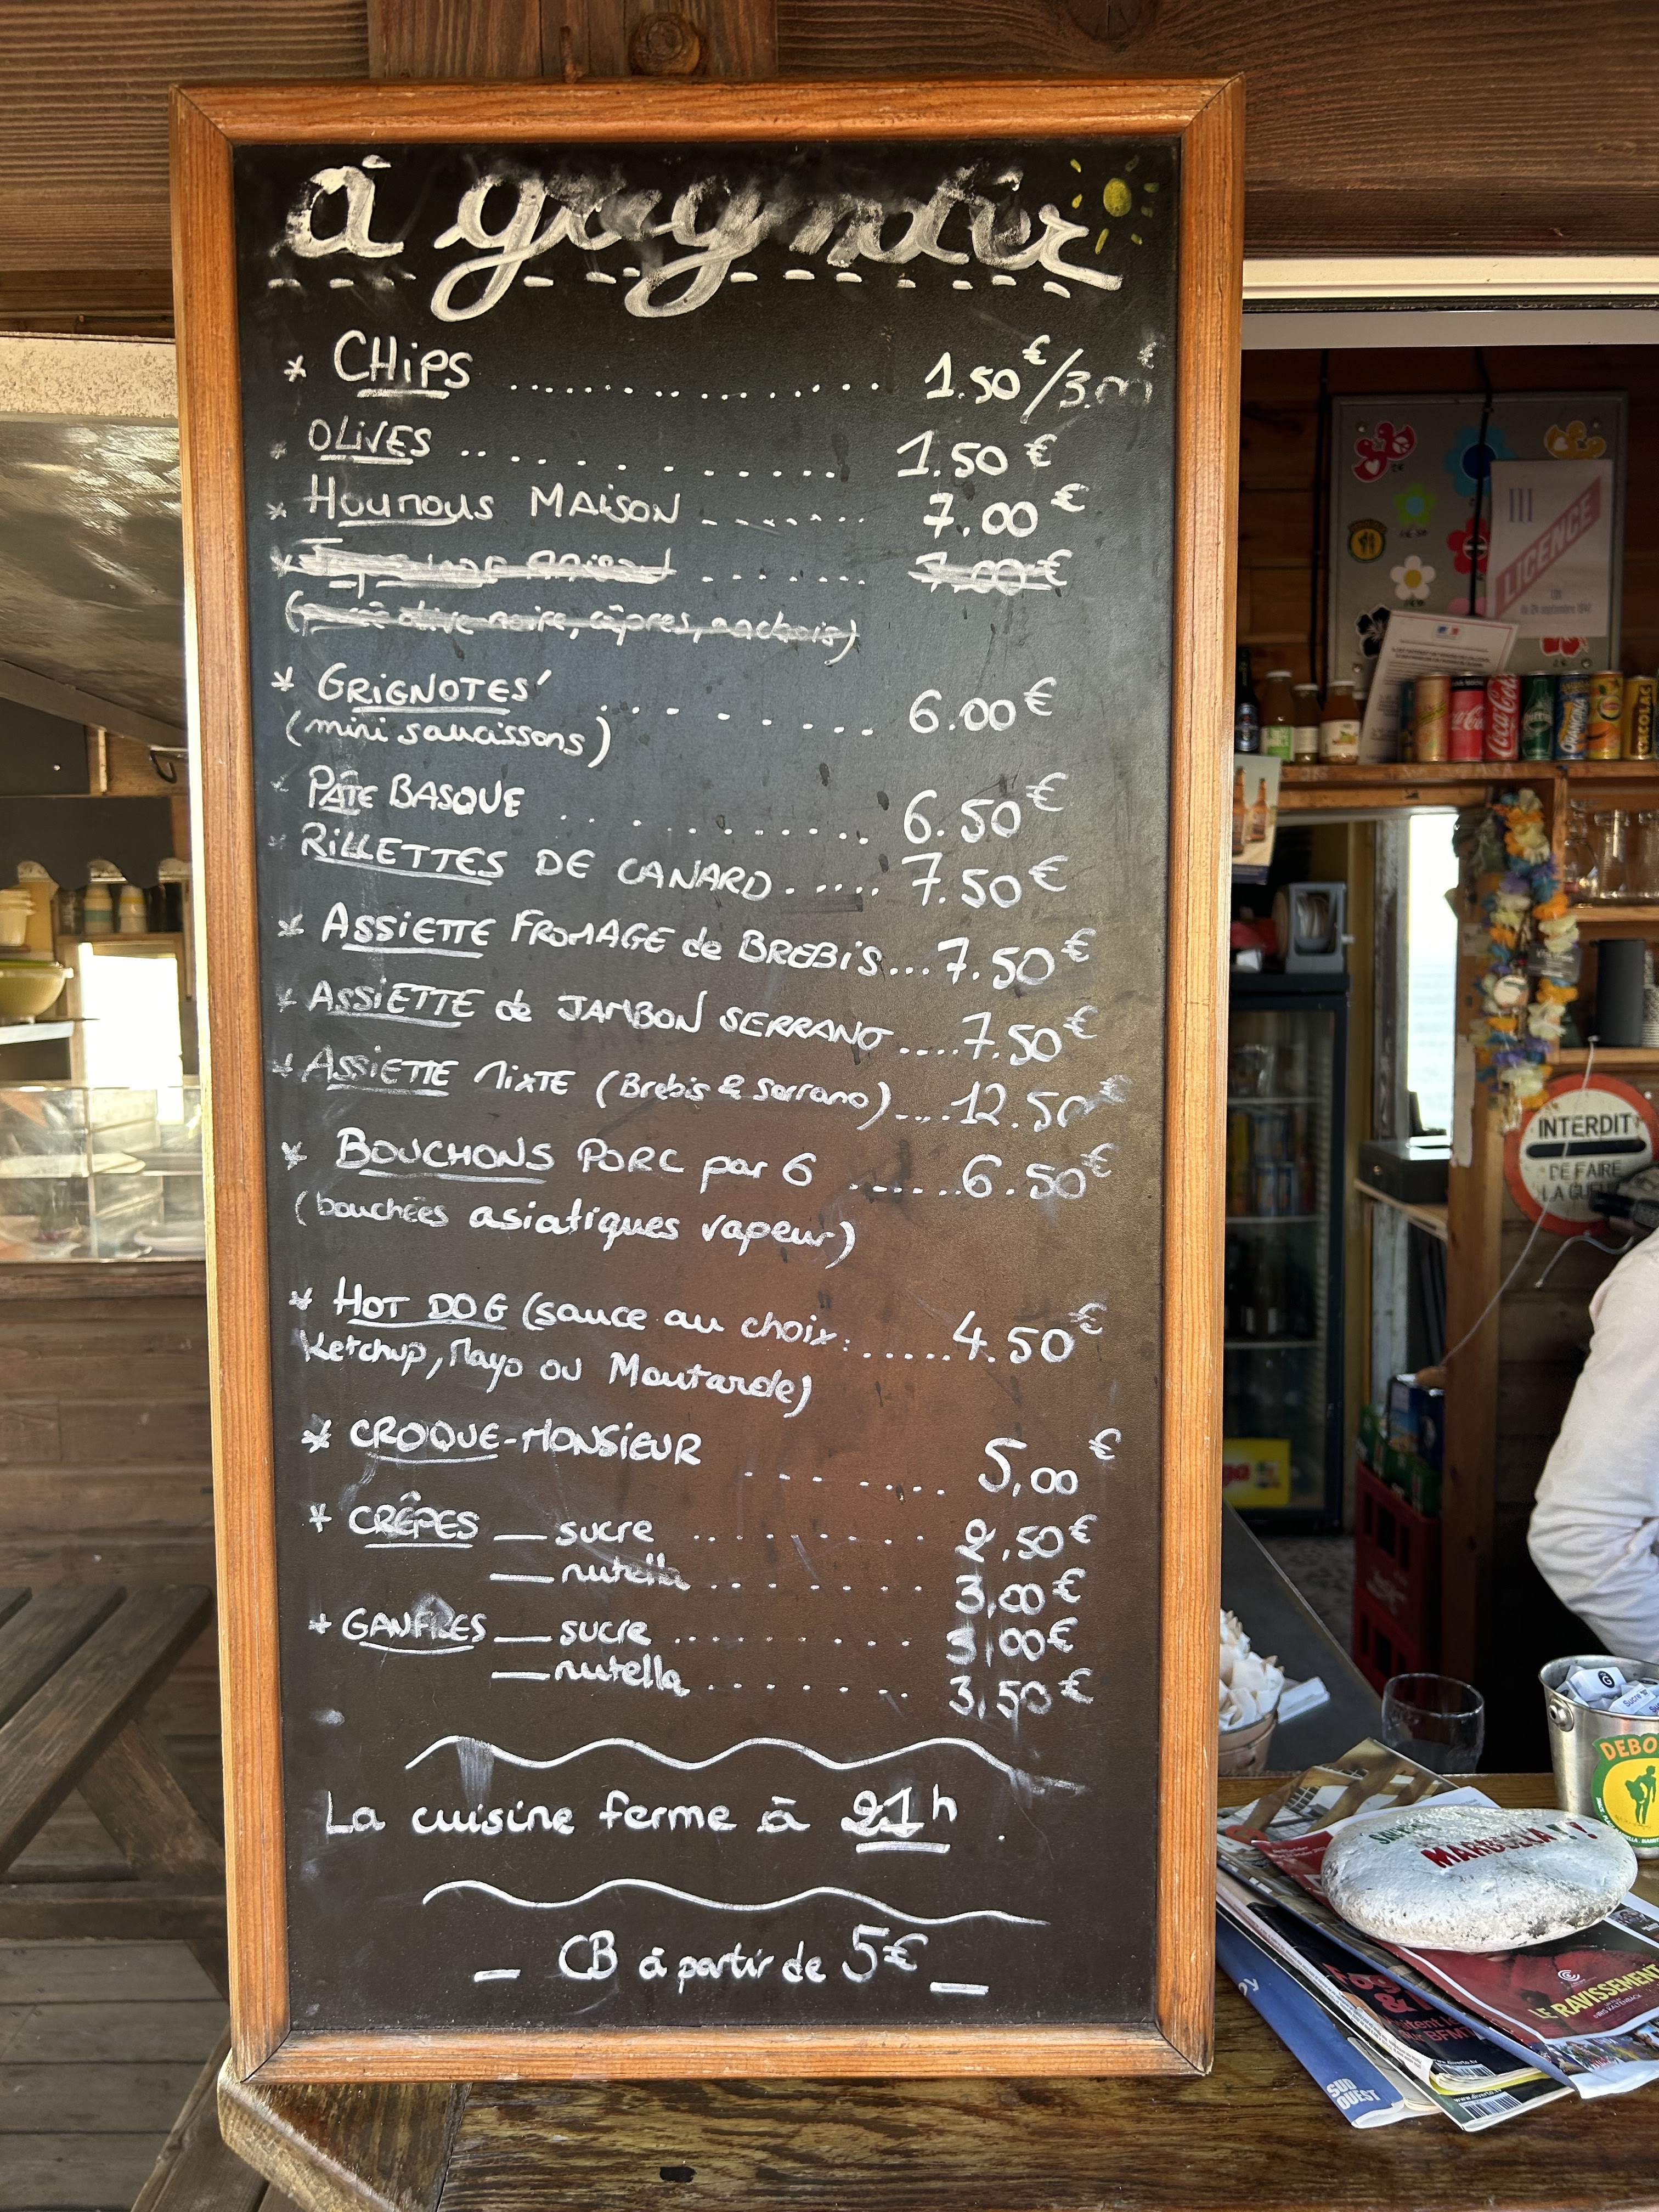 à grignoter
* CHiPS .................. 1.50€/3.00€
* OLiVES .............. 1.50€
* Houmous MAiSON ....... 7.00€
* Tapenade Maison ....... 7.00€
(purée olive noire, câpres, anchois)
* GRiGNOTES' ......... 6.00€
(mini saucissons)
* PÂTE BASQUE ........... 6.50€
* RiLLETTES DE CANARD ...... 7.50€
* ASSiETTE FROMAGE de BREBiS...7.50€
* ASSiETTE de JAMBON SERRANO ....7.50€
* ASSiETTE MiXTE (Brebis & Serrano)....12.50€
* BOUCHONS PORC par 6 ......6.50€
(bouchées asiatiques vapeur)
* HOT DOG (sauce au choix: ......4.50€
Ketchup, Mayo ou Moutarde)
* CROQUE-MONSiEUR ....... 5,00€
* CRÊPES — sucre .......... 2,50€
— nutella .......... 3,00€
* GAUFRES — sucre .......... 3,00€
— nutella .......... 3,50€
La cuisine ferme à 21h.
— CB à partir de 5€ —
III
LICENCE
Coca-Cola
Orangina
CACOLAC
INTERDIT
DE FAIRE
LA GUEULE
Sucre
MARBELLA !!
LE RAVISSEMENT
SUD
OUEST